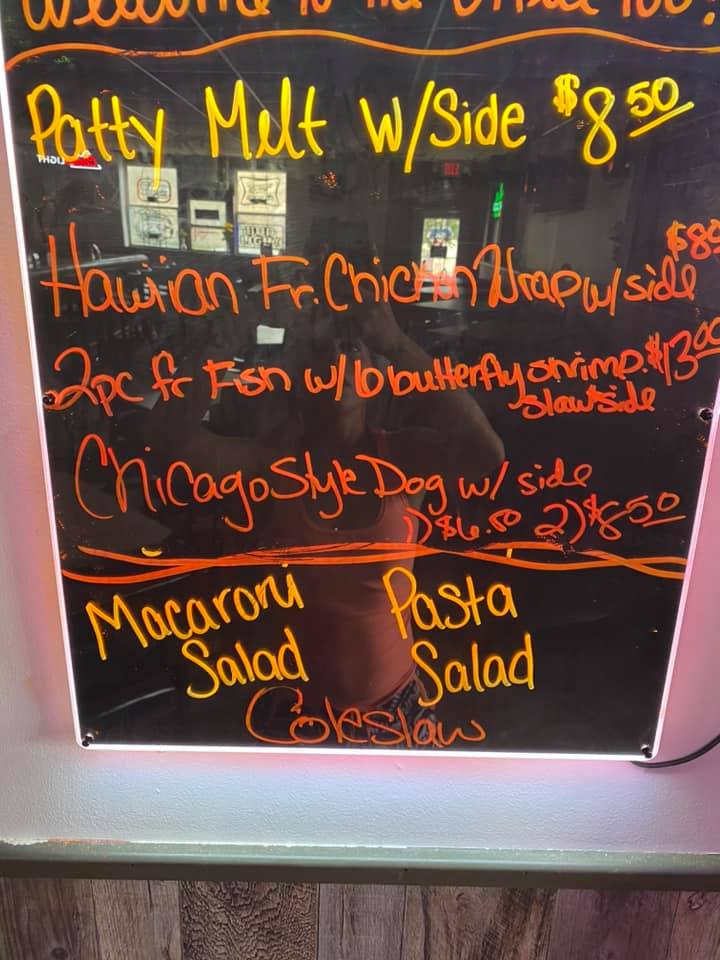 Welcome to the Office Too!
Patty Melt w/Side $8.50
Hawiian Fr. Chicken Wrap w/ side $8
2pc fr Fish w/ 6 butterfly shrimp. $13.00
slaw & side
Chicago Style Dog w/ side
1) $6.50 2) $8.50
Macaroni Pasta
Salad Salad
Coleslaw